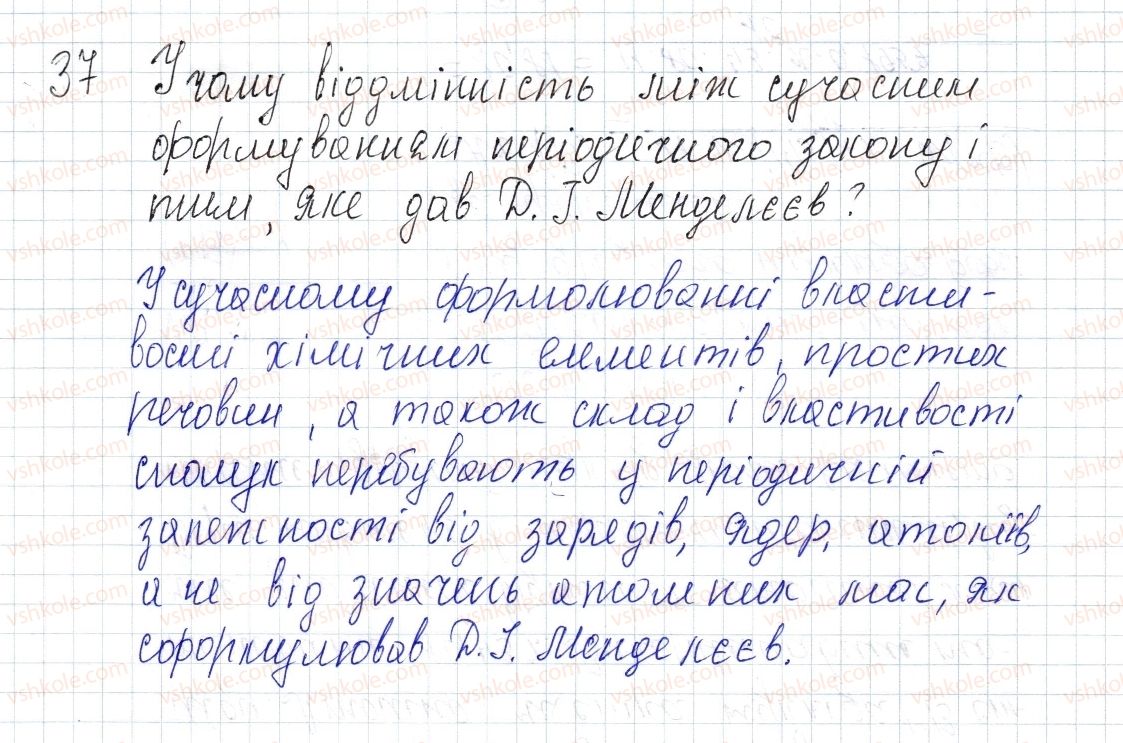 37 У чому віддмінність між сучасним
формуванням періодичного закону і
тим, яке дав Д. І. Менделєєв?
У сучасному формолюванні власти-
вості хімічних елементів, простих
речовин, а також склад і властивості
сполук перебувають у періодичній
залежності від зарядів, ядер, атоміїв,
а не від значень атомних мас, як
сформулював Д. І. Менделєєв.